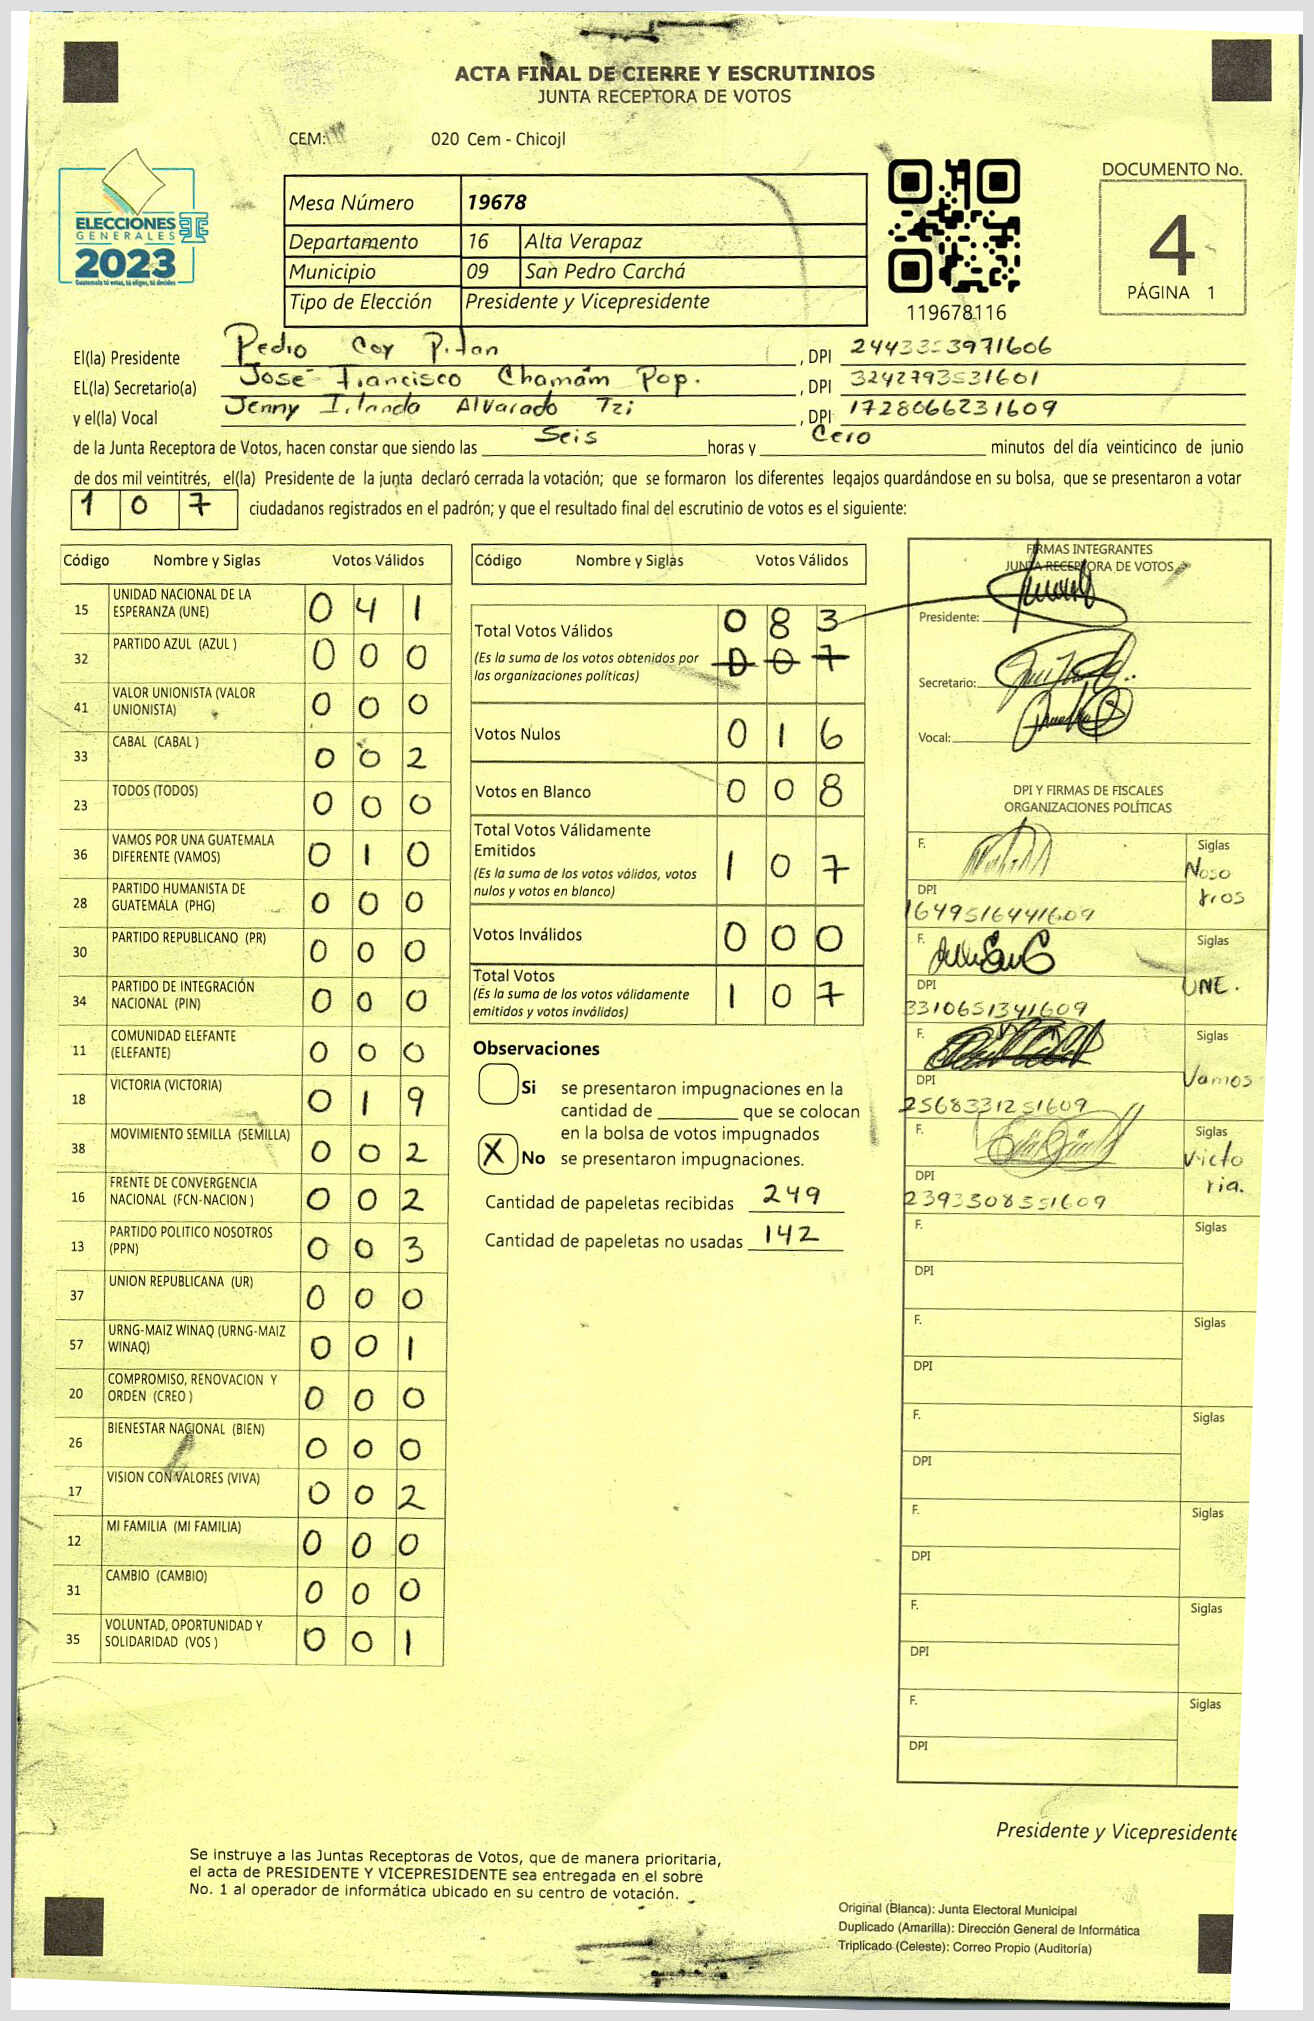 ACTA FINAL DE CIERRE Y ESCRUTINIOS
JUNTA RECEPTORA DE VOTOS
CEM: 020 Cem - Chicojl
ELECCIONES
GENERALES
2023
Guatemala tú votas, tú eliges, tú decides
Mesa Número 19678
Departamento 16 Alta Verapaz
Municipio 09 San Pedro Carchá
Tipo de Elección Presidente y Vicepresidente
119678116
DOCUMENTO No.
4
PÁGINA 1
El(la) Presidente Pedro Coy P , DPI 2443353971606
EL(la) Secretario(a) José Francisco Chamám Pop. , DPI 3242793531601
y el(la) Vocal Jenny Irlanda Alvarado Tzi , DPI 1728066231609
de la Junta Receptora de Votos, hacen constar que siendo las Seis horas y Cero minutos del día veinticinco de junio
de dos mil veintitrés, el(la) Presidente de la junta declaró cerrada la votación; que se formaron los diferentes legajos guardándose en su bolsa, que se presentaron a votar
1 0 7 ciudadanos registrados en el padrón; y que el resultado final del escrutinio de votos es el siguiente:
Código Nombre y Siglas Votos Válidos
15 UNIDAD NACIONAL DE LA
ESPERANZA (UNE) 0 4 1
32 PARTIDO AZUL (AZUL ) 0 0 0
41 VALOR UNIONISTA (VALOR
UNIONISTA) 0 0 0
33 CABAL (CABAL ) 0 0 2
23 TODOS (TODOS) 0 0 0
36 VAMOS POR UNA GUATEMALA
DIFERENTE (VAMOS) 0 1 0
28 PARTIDO HUMANISTA DE
GUATEMALA (PHG) 0 0 0
30 PARTIDO REPUBLICANO (PR) 0 0 0
34 PARTIDO DE INTEGRACIÓN
NACIONAL (PIN) 0 0 0
11 COMUNIDAD ELEFANTE
(ELEFANTE) 0 0 0
18 VICTORIA (VICTORIA) 0 1 9
38 MOVIMIENTO SEMILLA (SEMILLA) 0 0 2
16 FRENTE DE CONVERGENCIA
NACIONAL (FCN-NACION ) 0 0 2
13 PARTIDO POLITICO NOSOTROS
(PPN) 0 0 3
37 UNION REPUBLICANA (UR) 0 0 0
57 URNG-MAIZ WINAQ (URNG-MAIZ
WINAQ) 0 0 1
20 COMPROMISO, RENOVACION Y
ORDEN (CREO ) 0 0 0
26 BIENESTAR NACIONAL (BIEN) 0 0 0
17 VISION CON VALORES (VIVA) 0 0 2
12 MI FAMILIA (MI FAMILIA) 0 0 0
31 CAMBIO (CAMBIO) 0 0 0
35 VOLUNTAD, OPORTUNIDAD Y
SOLIDARIDAD (VOS ) 0 0 1
Código Nombre y Siglas Votos Válidos
Total Votos Válidos 0 8 3
(Es la suma de los votos obtenidos por
las organizaciones políticas) 0 0 7
Votos Nulos 0 1 6
Votos en Blanco 0 0 8
Total Votos Válidamente
Emitidos 1 0 7
(Es la suma de los votos válidos, votos
nulos y votos en blanco)
Votos Inválidos 0 0 0
Total Votos 1 0 7
(Es la suma de los votos válidamente
emitidos y votos inválidos)
Observaciones
Si se presentaron impugnaciones en la
cantidad de ________ que se colocan
en la bolsa de votos impugnados
X No se presentaron impugnaciones.
Cantidad de papeletas recibidas 249
Cantidad de papeletas no usadas 142
FIRMAS INTEGRANTES
JUNTA RECEPTORA DE VOTOS
Presidente:
Secretario:
Vocal:
DPI Y FIRMAS DE FISCALES
ORGANIZACIONES POLÍTICAS
F. Siglas
Noso
tros
DPI
1649516441609
F. Siglas
UNE.
DPI
3310651341609
F. Siglas
Vamos
DPI
2568331251609
F. Siglas
Victo
ria.
DPI
2393508351609
F. Siglas
DPI
F. Siglas
DPI
F. Siglas
DPI
F. Siglas
DPI
F. Siglas
DPI
F. Siglas
DPI
Presidente y Vicepresidente
Se instruye a las Juntas Receptoras de Votos, que de manera prioritaria,
el acta de PRESIDENTE Y VICEPRESIDENTE sea entregada en el sobre
No. 1 al operador de informática ubicado en su centro de votación.
Original (Blanca): Junta Electoral Municipal
Duplicado (Amarilla): Dirección General de Informática
Triplicado (Celeste): Correo Propio (Auditoría)